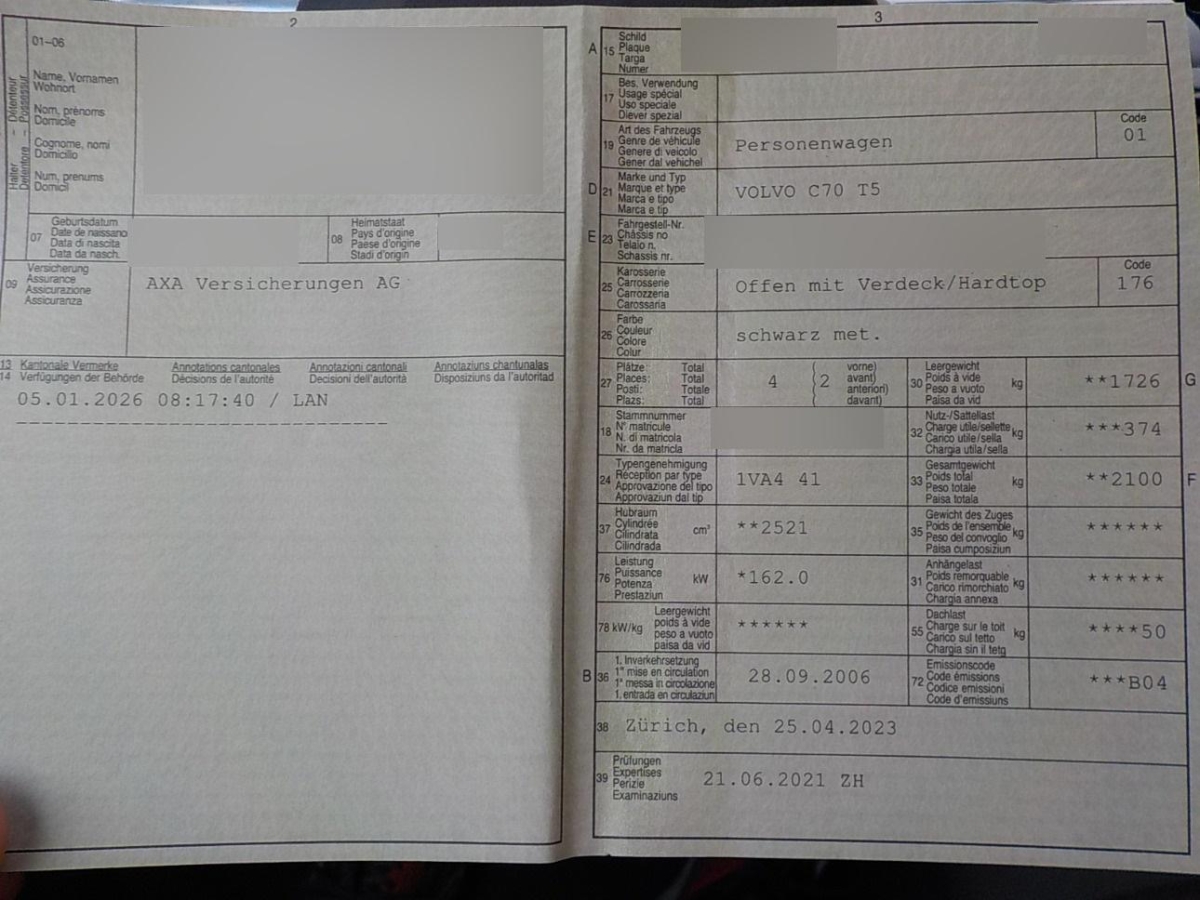 2
01–06
Halter – Détenteur
Detentore – Possessur
Name, Vornamen
Wohnort
Nom, prénoms
Domicile
Cognome, nomi
Domicilio
Num, prenums
Domicil
07
Geburtsdatum
Date de naissance
Data di nascita
Data da nasch.
08
Heimatstaat
Pays d'origine
Paese d'origine
Stadi d'origin
09
Versicherung
Assurance
Assicurazione
Assicuranza
AXA Versicherungen AG
13 Kantonale Vermerke Annotations cantonales Annotazioni cantonali Annotaziuns chantunalas
14 Verfügungen der Behörde Décisions de l'autorité Decisioni dell'autorità Disposiziuns da l'autoritad
05.01.2026 08:17:40 / LAN
------------------------------
3
A 15
Schild
Plaque
Targa
Numer
17
Bes. Verwendung
Usage spécial
Uso speciale
Diever spezial
19
Art des Fahrzeugs
Genre de véhicule
Genere di veicolo
Gener dal vehichel
Personenwagen
Code
01
D 21
Marke und Typ
Marque et type
Marca e tipo
Marca e tip
VOLVO C70 T5
E 23
Fahrgestell-Nr.
Châssis no
Telaio n.
Schassis nr.
25
Karosserie
Carrosserie
Carrozzeria
Carossaria
Offen mit Verdeck/Hardtop
Code
176
26
Farbe
Couleur
Colore
Colur
schwarz met.
27
Plätze: Total
Places: Total
Posti: Totale
Plazs: Total
4
2
vorne)
avant)
anteriori)
davant)
30
Leergewicht
Poids à vide
Peso a vuoto
Paisa da vid
kg
**1726
G
18
Stammnummer
N° matricule
N. di matricola
Nr. da matricla
32
Nutz-/Sattellast
Charge utile/sellette
Carico utile/sella
Chargia utila/sella
kg
***374
24
Typengenehmigung
Réception par type
Approvazione del tipo
Approvaziun dal tip
1VA4 41
33
Gesamtgewicht
Poids total
Peso totale
Paisa totala
kg
**2100
F
37
Hubraum
Cylindrée
Cilindrata
Cilindrada
cm³
**2521
35
Gewicht des Zuges
Poids de l'ensemble
Peso del convoglio
Paisa cumposiziun
kg
******
76
Leistung
Puissance
Potenza
Prestaziun
kW
*162.0
31
Anhängelast
Poids remorquable
Carico rimorchiato
Chargia annexa
kg
******
78 kW/kg
Leergewicht
poids à vide
peso a vuoto
paisa da vid
******
55
Dachlast
Charge sur le toit
Carico sul tetto
Chargia sin il tetg
kg
****50
B 36
1. Inverkehrsetzung
1re mise en circulation
1a messa in circolazione
1. entrada en circulaziun
28.09.2006
72
Emissionscode
Code émissions
Codice emissioni
Code d'emissiuns
***B04
38 Zürich, den 25.04.2023
39
Prüfungen
Expertises
Perizie
Examinaziuns
21.06.2021 ZH